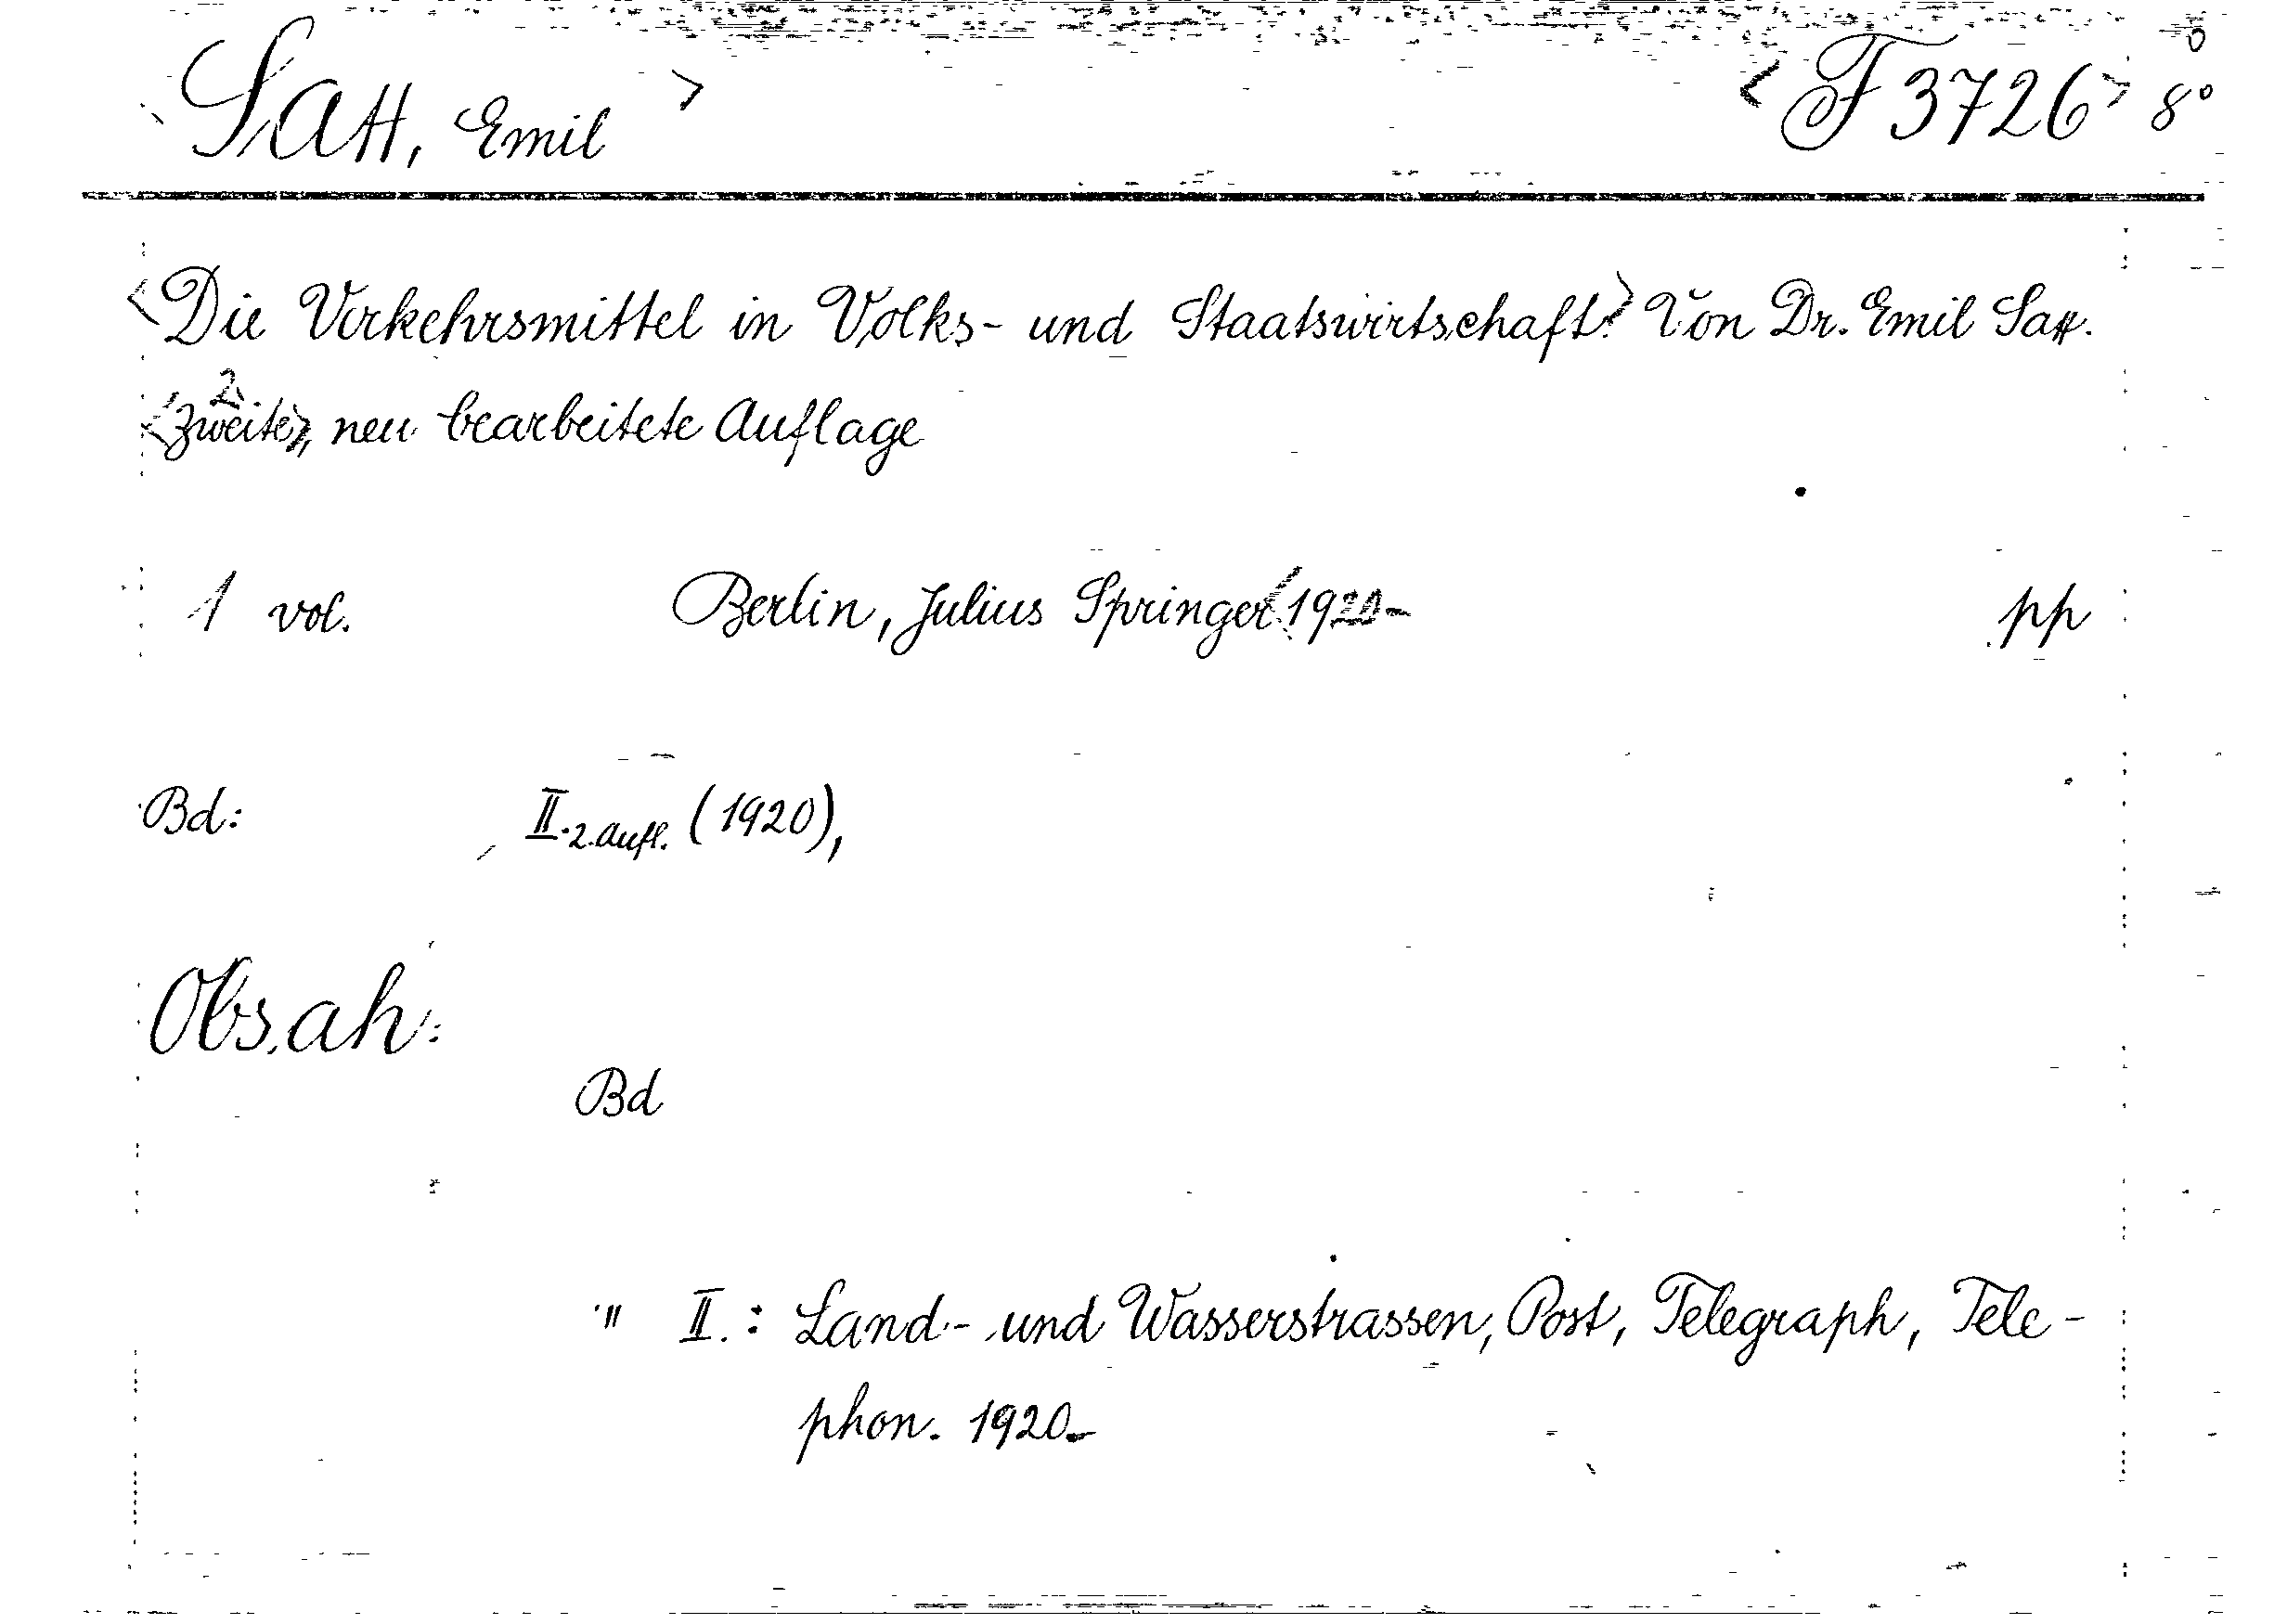 <Sax, Emil>
<F 3726> 8°
<Die Verkehrsmittel in Volks- und Staatswirtschaft.> Von Dr. Emil Sax.
2.
<Zweite>, neu bearbeitete Auflage
1 vol. Berlin, Julius Springer <1920- pp
Bd: II. 2. Aufl. (1920),
Obsah:
Bd
" II.: Land- und Wasserstrassen, Post, Telegraph, Tele-
phon. 1920.-